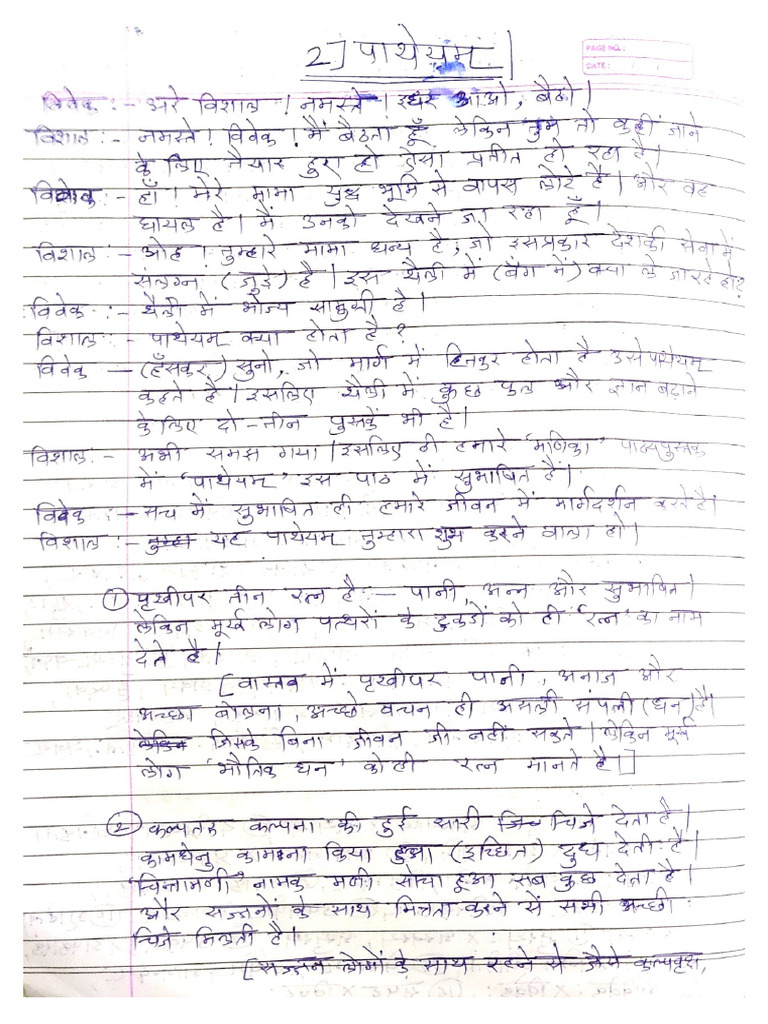 2] पाथेयम् |
PAGE NO.:
DATE:
विवेक :- अरे विशाल ! नमस्ते। इधर आओ, बैठो।
विशाल :- नमस्ते! विवेक! मैं बैठता हूँ लेकिन तुम तो कहीं जाने
के लिए तैयार हुए हो ऐसा प्रतीत हो रहा है।
विवेक :- हाँ! मेरे मामा युद्ध भूमि से वापस लोटे है। और वह
घायल है। मैं उनको देखने जा रहा हूँ।
विशाल :- ओह। तुम्हारे मामा धन्य है, जो इसप्रकार देशकी सेवामें
संलग्न (जुडे) है। इस थैली में (बॅग में) क्या ले जा रहे हो?
विवेक :- थैली में भोज्य सामुग्री है।
विशाल :- पाथेयम क्या होता है?
विवेक - (हँसकर) सुनो, जो मार्ग में हितकर होता है उसे पाथेयम्
कहते है। इसलिए थैली में कुछ फल और ज्ञान बढाने
के लिए दो-तीन पुस्तकें भी है।
विशाल :- अभी समझ गया। इसलिए ही हमारे 'मणिका' पाठ्यपुस्तक
में 'पाथेयम्' इस पाठ में सुभाषित हैं।
विवेक :- सच में सुभाषित ही हमारे जीवन में मार्गदर्शन करते है।
विशाल :- यह पाथेयम् तुम्हारा शुभ करने वाला हो।
① पृथ्वीपर तीन रत्न है - पानी, अन्न और सुभाषित।
लेकिन मूर्ख लोग पत्थरों के टुकडों को ही 'रत्न' का नाम
देते है।
[वास्तव में पृथ्वीपर पानी, अनाज और
अच्छा बोलना, अच्छे वचन ही असली संपत्ती (धन) है।
लेकिन जिसके बिना जीवन जी नहीं सकते। लेकिन मूर्ख
लोग 'भौतिक धन' को ही रत्न मानते है।]
② कल्पतरू कल्पना की हुई सारी चिजे देता है।
कामधेनु कामना किया हुआ (इच्छित) दुध देती है।
'चिन्तामणी' नामक मणी सोचा हुआ सब कुछ देता है।
और सज्जनों के साथ मित्रता करने से सभी अच्छी
चिजे मिलती है।
[सज्जन लोगों के साथ रहने से जैसे कल्पवृक्ष,